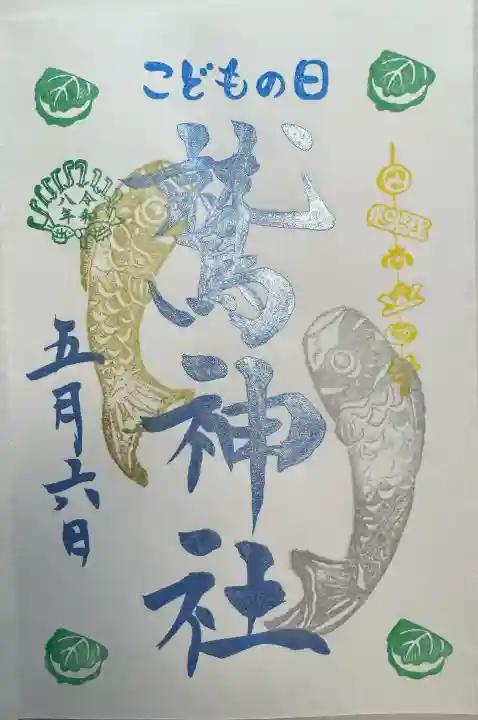 こどもの日
鷲神社
令和
八年
五月六日